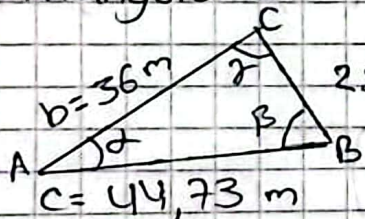 C
b=36 m
γ
2.
α
β
A
B
C= 44,73 m